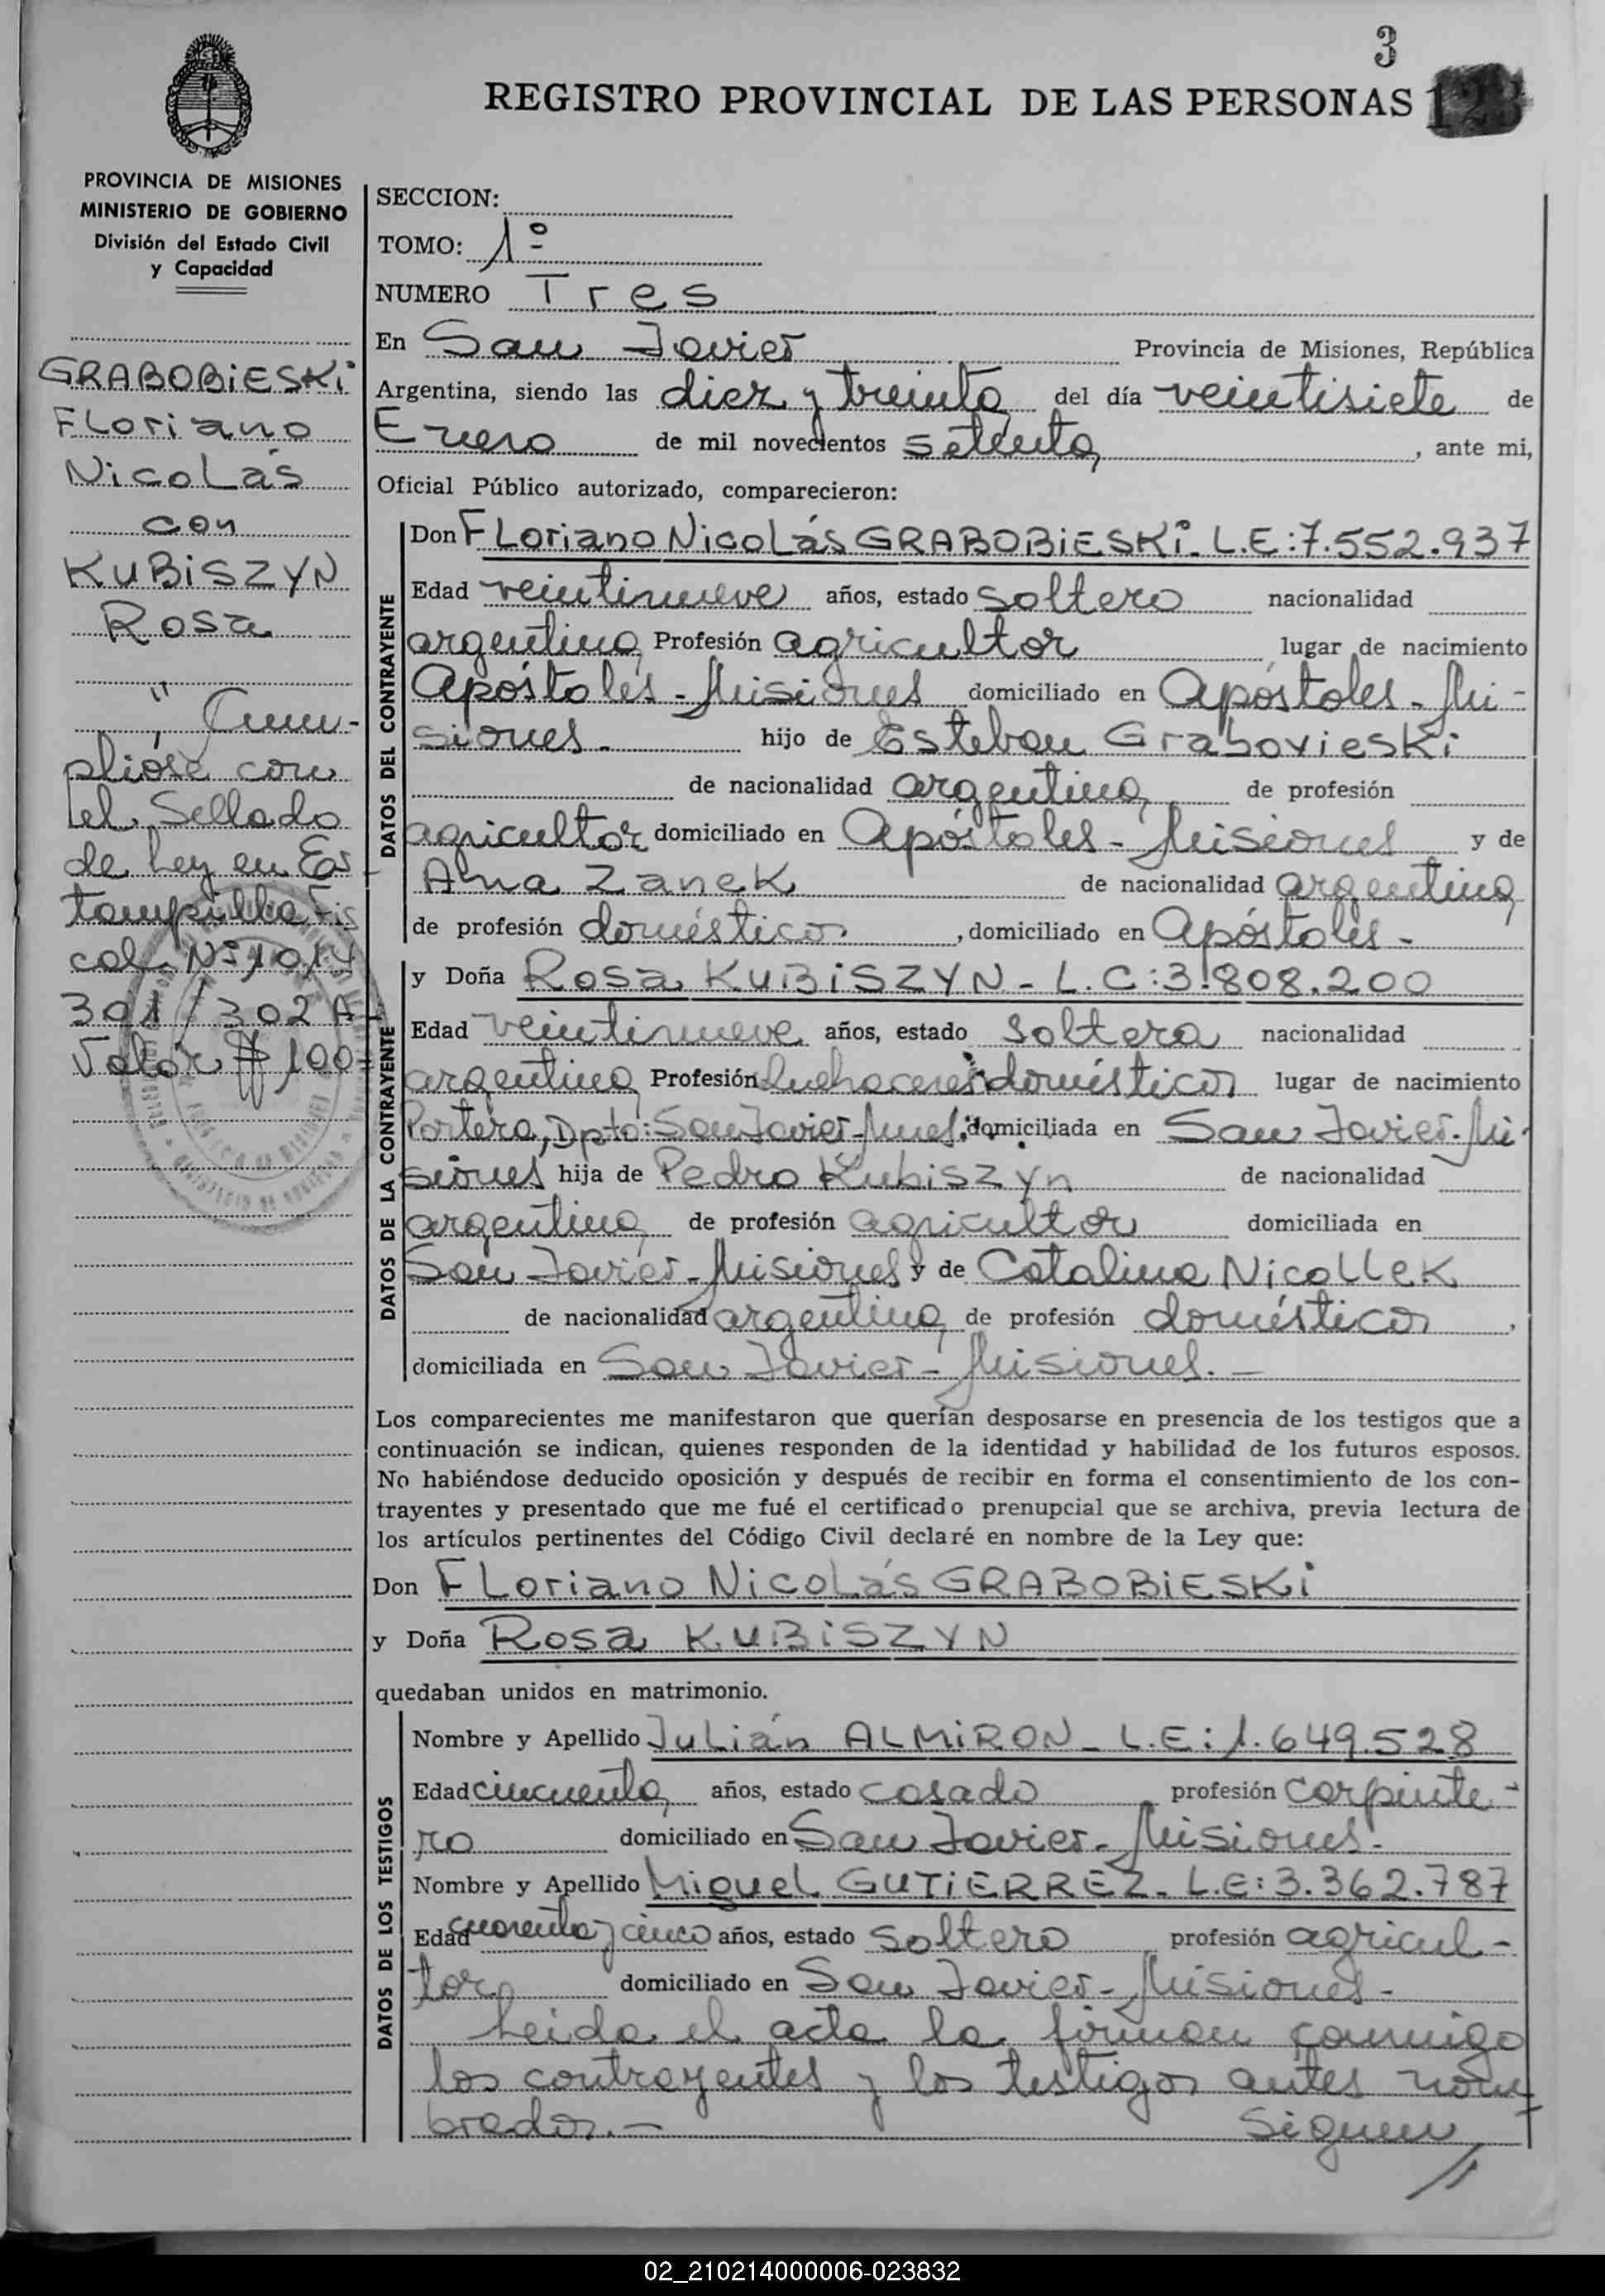 3
REGISTRO PROVINCIAL DE LAS PERSONAS 123
PROVINCIA DE MISIONES
MINISTERIO DE GOBIERNO
División del Estado Civil
y Capacidad
GRABOBiESKi
Floriano
Nicolás
con
KUBiSZYN
Rosa
" Cum-
plióse con
el Sellado
de Ley en Es-
tampilla Fis
cal Nº 1014
301/302 A
Valor $ 100
SECCION:
TOMO: 1º
NUMERO Tres
En San Javier Provincia de Misiones, República
Argentina, siendo las diez y treinta del día veintisiete de
Enero de mil novecientos setenta, ante mi,
Oficial Público autorizado, comparecieron:
DATOS DEL CONTRAYENTE
Don Floriano Nicolás GRABOBiESKi. L.E:7.552.937
Edad veintinueve años, estado soltero nacionalidad
argentina Profesión agricultor lugar de nacimiento
Apóstoles - Misiones domiciliado en Apóstoles - Mi-
siones - hijo de Esteban Grabovieski
de nacionalidad argentina de profesión
agricultor domiciliado en Apóstoles - Misiones y de
Ana Zanek de nacionalidad argentina
de profesión domésticos, domiciliado en Apóstoles -
DATOS DE LA CONTRAYENTE
y Doña Rosa KUBiSZYN - L.C:3.808.200
Edad veintinueve años, estado soltera nacionalidad
argentina Profesión Quehaceres domésticos lugar de nacimiento
Portera, Dpto: San Javier-Mnes. domiciliada en San Javier-Mi-
siones hija de Pedro Kubiszyn de nacionalidad
argentina de profesión agricultor domiciliada en
San Javier - Misiones y de Catalina Nicollek
de nacionalidad argentina de profesión domésticos,
domiciliada en San Javier - Misiones. -
Los comparecientes me manifestaron que querían desposarse en presencia de los testigos que a
continuación se indican, quienes responden de la identidad y habilidad de los futuros esposos.
No habiéndose deducido oposición y después de recibir en forma el consentimiento de los con-
trayentes y presentado que me fué el certificado prenupcial que se archiva, previa lectura de
los artículos pertinentes del Código Civil declaré en nombre de la Ley que:
Don Floriano Nicolás GRABOBiESKi
y Doña Rosa KUBiSZYN
quedaban unidos en matrimonio.
DATOS DE LOS TESTIGOS
Nombre y Apellido Julián ALMiRON - L.E:1.649.528
Edad cincuenta años, estado casado profesión carpinte-
ro domiciliado en San Javier - Misiones.
Nombre y Apellido Miguel GUTiERREZ - L.E:3.362.787
Edad cuarenta y cinco años, estado soltero profesión agricul-
tor domiciliado en San Javier - Misiones -
Leida el acta la firman conmigo
los contrayentes y los testigos antes nom
brados. - Siguen
//
02_210214000006-023832